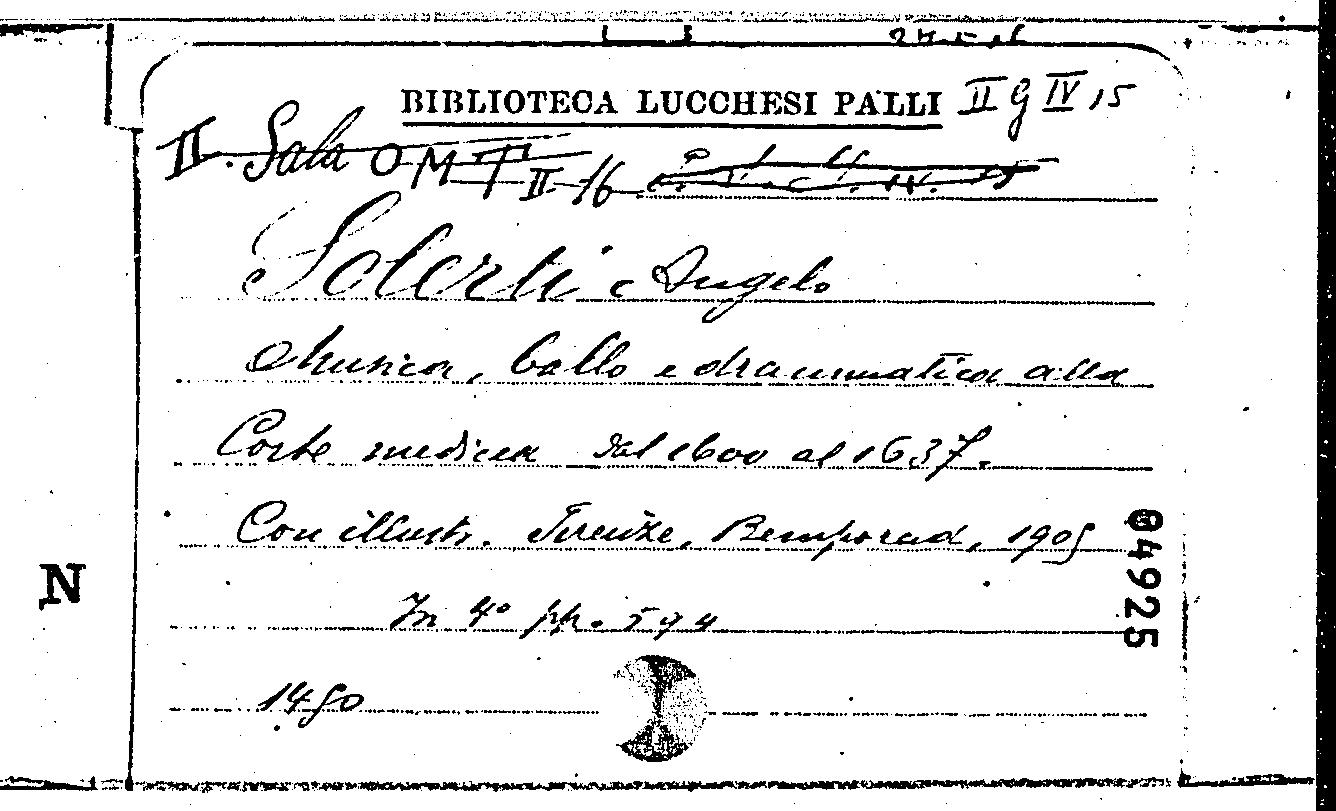 BIBLIOTECA LUCCHESI PALLI II G IV 15
II. Sala O M T II 16
Solerti Angelo
Musica, ballo e drammatica alla
Corte medicea dal 1600 al 1637.
Con illustr. Firenze, Bemporad, 1905
In 4° pp. 594
1450
04925
N